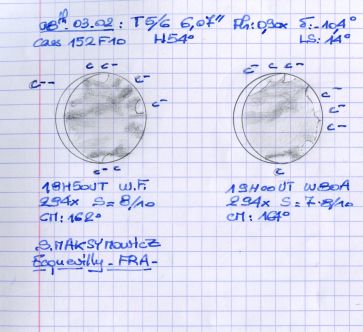 03.02: T5/6 6,07" Ph: 0,90x δ: -10,4°
Cass 152F10 H54° LS: 14°
C C-
C--
C-
C-
C-C
C C C-
C--
C-
C--
19H50UT W.F.
294x S=8/10
CM: 162°
19H00UT W80A
294x S=7.8/10
CM: 161°
S. MAKSYMOWICZ
Ecquevilly - FRA -